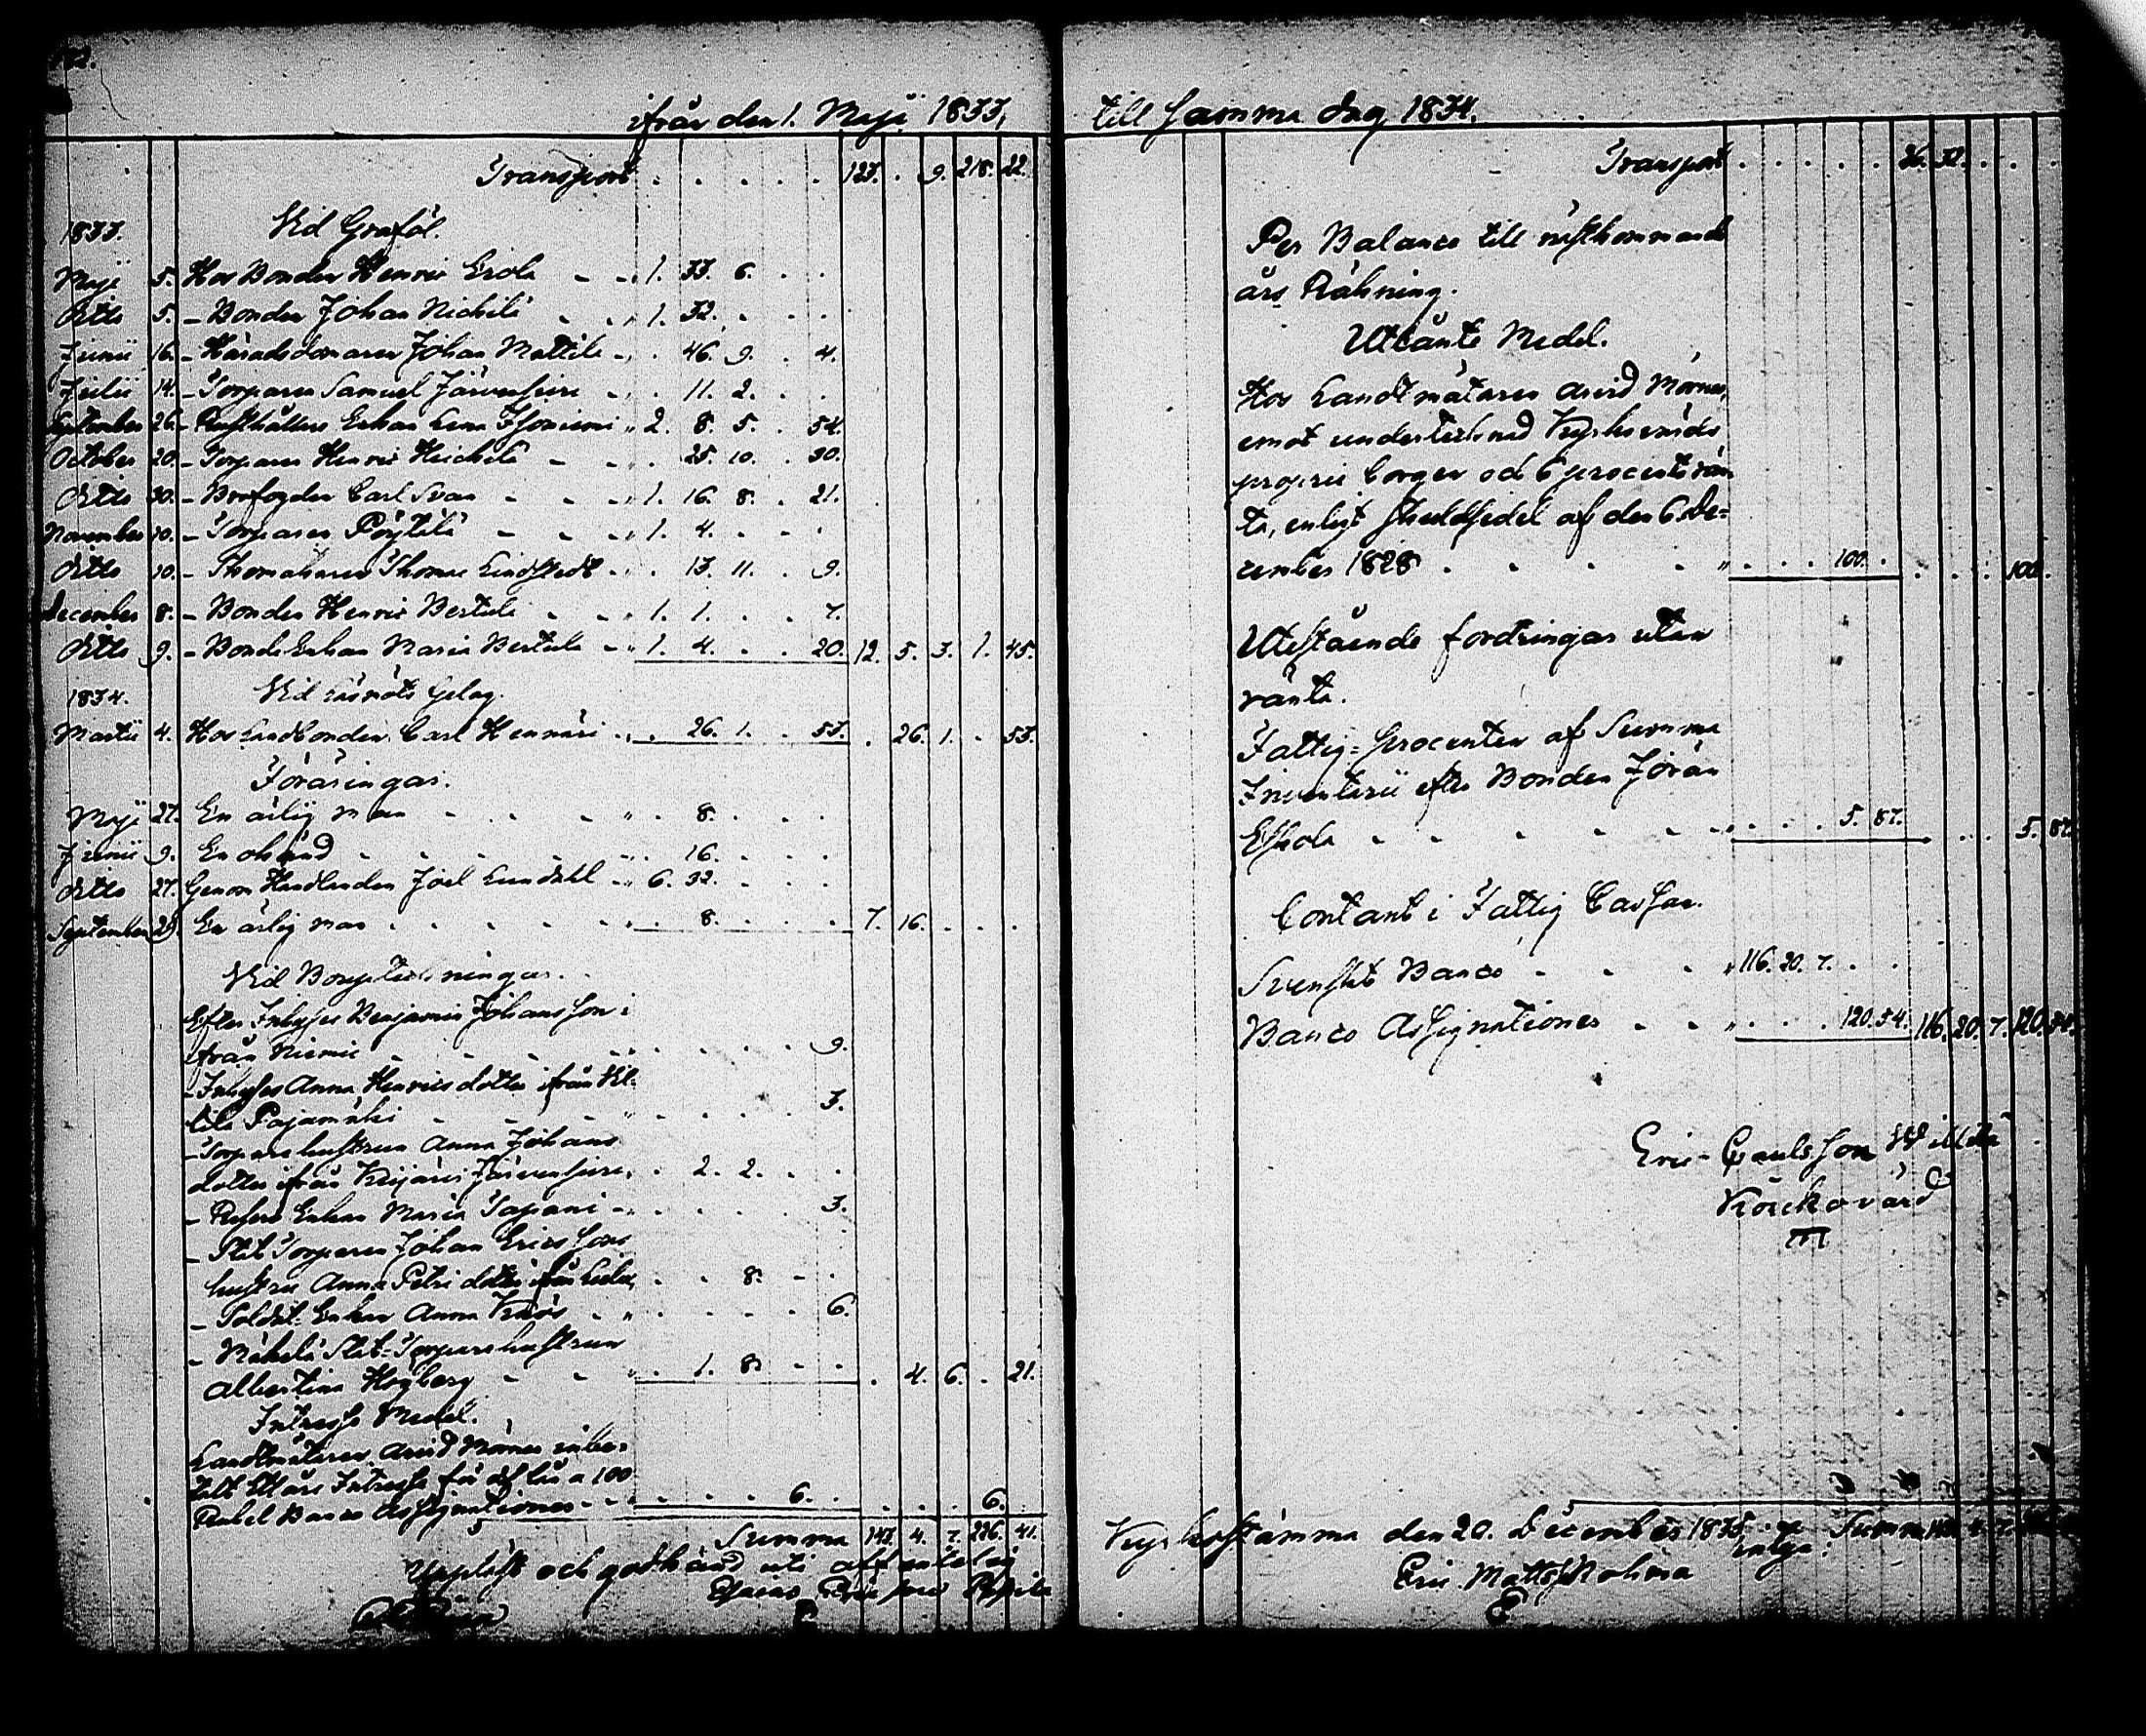 ifrån den 1. Maji 1833,
Transport . . . . . . 123. . 9. 218. 22.
1833. Vid Graföl.
Maji 5. Hos Bonden Henric Erola - - „ 1. 33. 6. . .
Ditto 5. - Bonden Johan Nichilä . . „ 1. 32. . . .
Junii 16. - Häradsdomaren Johan Mattila - „ . 46. 9. . 4.
Julii 14. - Torparen Samuel Järvensivu - „ . 11. 2. . .
September 26. - Rusthållare Enkan Lena Isoniemi „ 2. 8. 5. . 54.
October 20. - Torparen Henric Heickilä - - „ . 25. 10. . 30.
Ditto 30. - Brofogden Carl Svan - - - „ 1. 16. 8. . 21.
November 10. - Torparen Pöytilä - - - „ 1. 4. . . .
Ditto 10. - Skomakaren Thomas Lindstedt - „ . 13. 11. . 9.
December 8. - Bonden Henric Bertula - - „ 1. 1. . . 7.
Ditto 9. - Bonde Enkan Maria Bertula - „ 1. 4. . . 20. 12. 5. 3. 1. 45.
1834. Vid Läsmöts Gelag.
Martii 4. Hos Landbonden Carl Hennäri - „ . 26. 1. . 53. . 26. 1. . 53.
Föräringar.
Maji 27. En ärlig man - . . - „ . 8. . . .
Junii 9. En okänd - - - - - „ . 16. . . .
Ditto 27. Genom Handlanden Joel Lundahl - „ 6. 32. . . .
September 29. En ärlig man . . . . . „ . 8. . . . 7. 16. . . .
Vid Bouptekningar.
Efter Inhyses Benjamin Johansson i
från Niemi - - - - - . . . . 9.
- Inhyses Anna Henricsdotter ifrån
tila Pajamäki - - - - „ . . . . 3.
- Torpare hustrun Anna Johans
dotter ifrån Järvensivu „ . 2. 2. . .
- Enkan Maria Tapani - „ . . . . 3.
- Torparen Johan Ericssons
hustru Anna Petri dotter ifrån . . 8. - .
- Soldat-Enkan Anna - „ . . . . 6.
- Torparehustrun
Albertina Högberg - - „ . 1. 8. - . . 4. 6. . 21.
Intresse Medel.
Landtmätaren Arvid Mörnes inbe-
talt Ett års Intresse för af lån a 100
Rubel Banco Assignationer - - „ . . . . 6. . . . . 6.
Summa 143. 4. 7. 226. 41.
Uppläst och godkänd uti allmänelig
Esaias
till samma dag 1834.
Transport . . . . . 26. 32. . . .
Per Balance till nästkommande
års Räkning.
Utlånte Medel.
Hos Landtmätaren Arvid Mörnes,
emot undertecknad Kyrkovärds
proprie borgen och 6 procents rän
ta, enligt skuldsedel af den 6. De-
cember 1828 . . . . „ . . . . 100. . . . . 100.
Utestående fordringar utan
ränta.
Fattig-procenten af Summa
Inventarii efter Bonden Jöran
Eskola - - - - - „ . . . 5. 87. . . . 5. 87.
Contant i Fattig Cassan.
Svenskt Banco - - - „ 116. 20. 7. . .
Banco Assignationer - - „ . . . 120. 54. 116. 20. 7. 120. 54.
Eric Paulsson Willilä
Körckovärd
Kyrkostämma den 20. December 1835. Summa
Eric Mattss Rohiva